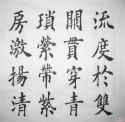 流度於雙
關貫穿青
瑣縈帶紫
房激揚清